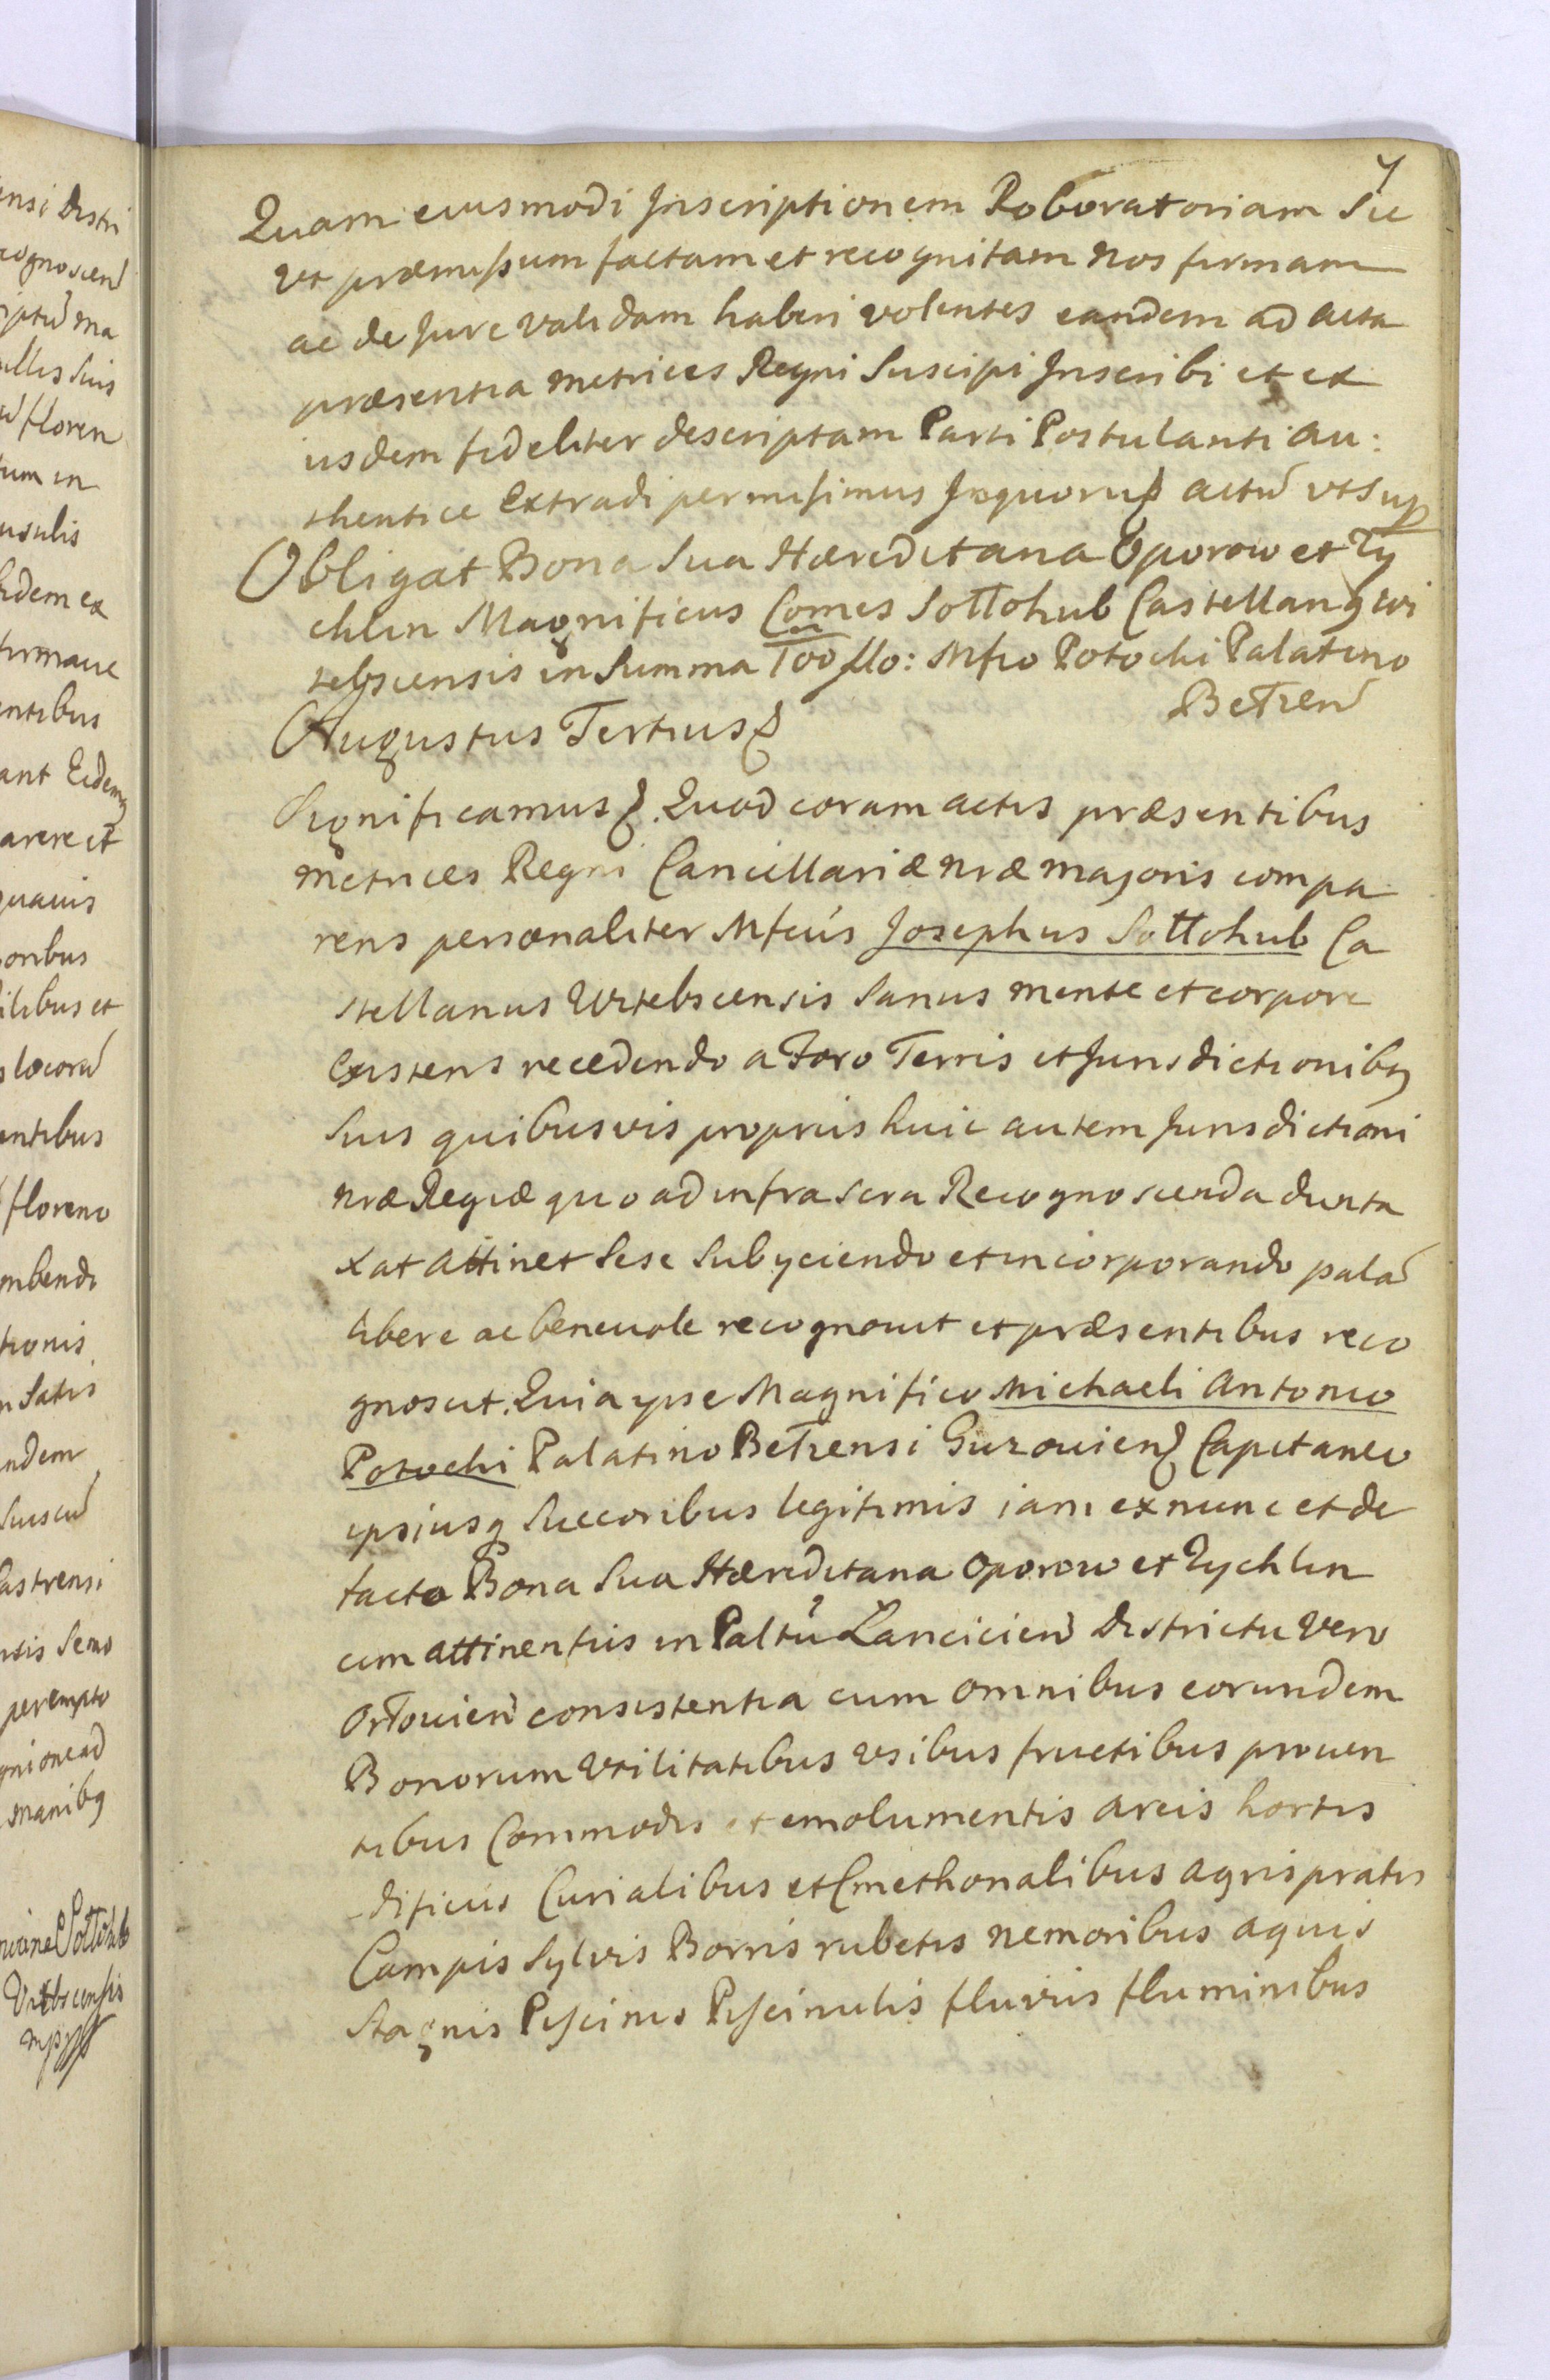 7
Quam eiusmodi Inscriptionem Roboratoriam Sic
vt præmissum factam et recognitam nos firmam
ac de Jure validam haberi volentes eandem ad acta
præsentia metrices Regni Suscipi Inscribi et ex
iisdem fideliter descriptam Parti Postulanti au:
thentice Extradi permisimus Inquorū actū vtsup
Obligat Bona Sua Hæreditaria Oporow et Ży
chlin Magnificus Comes Sołłohub Castellanꝯ wi
tebscensis in Summa 100 flo: Mfco Potocki Palatino
Bełzen
Augustus Tertius
Significamus Quod coram actis præsentibus
metrices Regni Cancellariæ nræ majoris compa
rens personaliter Mfcus Josephus Sołłohub Ca
stellanus Witebscensis Sanus mente et corpore
Existens recedendo a Foro Terris et Jurisdictionibꝯ
Suis quibusvis propriis huic autem Jurisdictioni
nræ Regiæ quoad infra scra Recognoscenda dunta
xat attinet Sese Subyciendo et incorporando palā
libere ac beneuole recognouit et præsentibus reco
gnoscit. Quia ipse Magnifico Michaeli Antonio
Potocki Palatino Bełzensi Guzouien Capitaneo
ipsiusq Succoribus legitimis iam ex nunc et de
facto Bona Sua Hæreditaria Oporow et Zychlin
cum attinentiis in Paltū Lancicien Districtu vero
Orłouien consistentia cum omnibus eorundem
Bonorum vtilitatibus vsibus fructibus prouen
tibus Commodis et emolumentis areis hortis
dificiis Curialibus et Cmethonalibus agris pratis
Campis Sylvis Borris rubetis nemoribus aquis
Stagnis Piscinis Piscinulis fluviis fluminibus